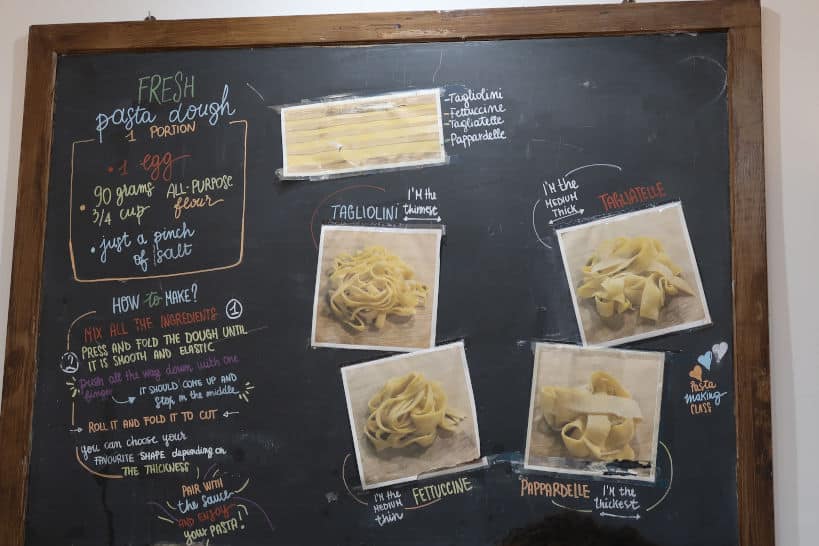 FRESH
pasta dough
1 PORTION
• 1 egg
• 90 grams ALL-PURPOSE
3/4 cup flour
• just a pinch
of salt
HOW to MAKE?
MIX ALL THE INGREDIENTS 1
2 PRESS AND FOLD THE DOUGH UNTIL
IT IS SMOOTH AND ELASTIC
Push all the way down with one
finger → IT SHOULD COME UP AND
stop in the middle
→ ROLL IT AND FOLD IT TO CUT ←
you can choose your
FAVOURITE SHAPE depending on
THE THICKNESS
PAIR WITH
the sauce
AND ENJOY
your PASTA!
-Tagliolini
-Fettuccine
-Tagliatelle
-Pappardelle
TAGLIOLINI I'M the
thinnest
I'M the
MEDIUM
Thick
TAGLIATELLE
I'M the
MEDIUM
thin
FETTUCCINE
PAPPARDELLE I'M the
thickest
Pasta
making
CLASS